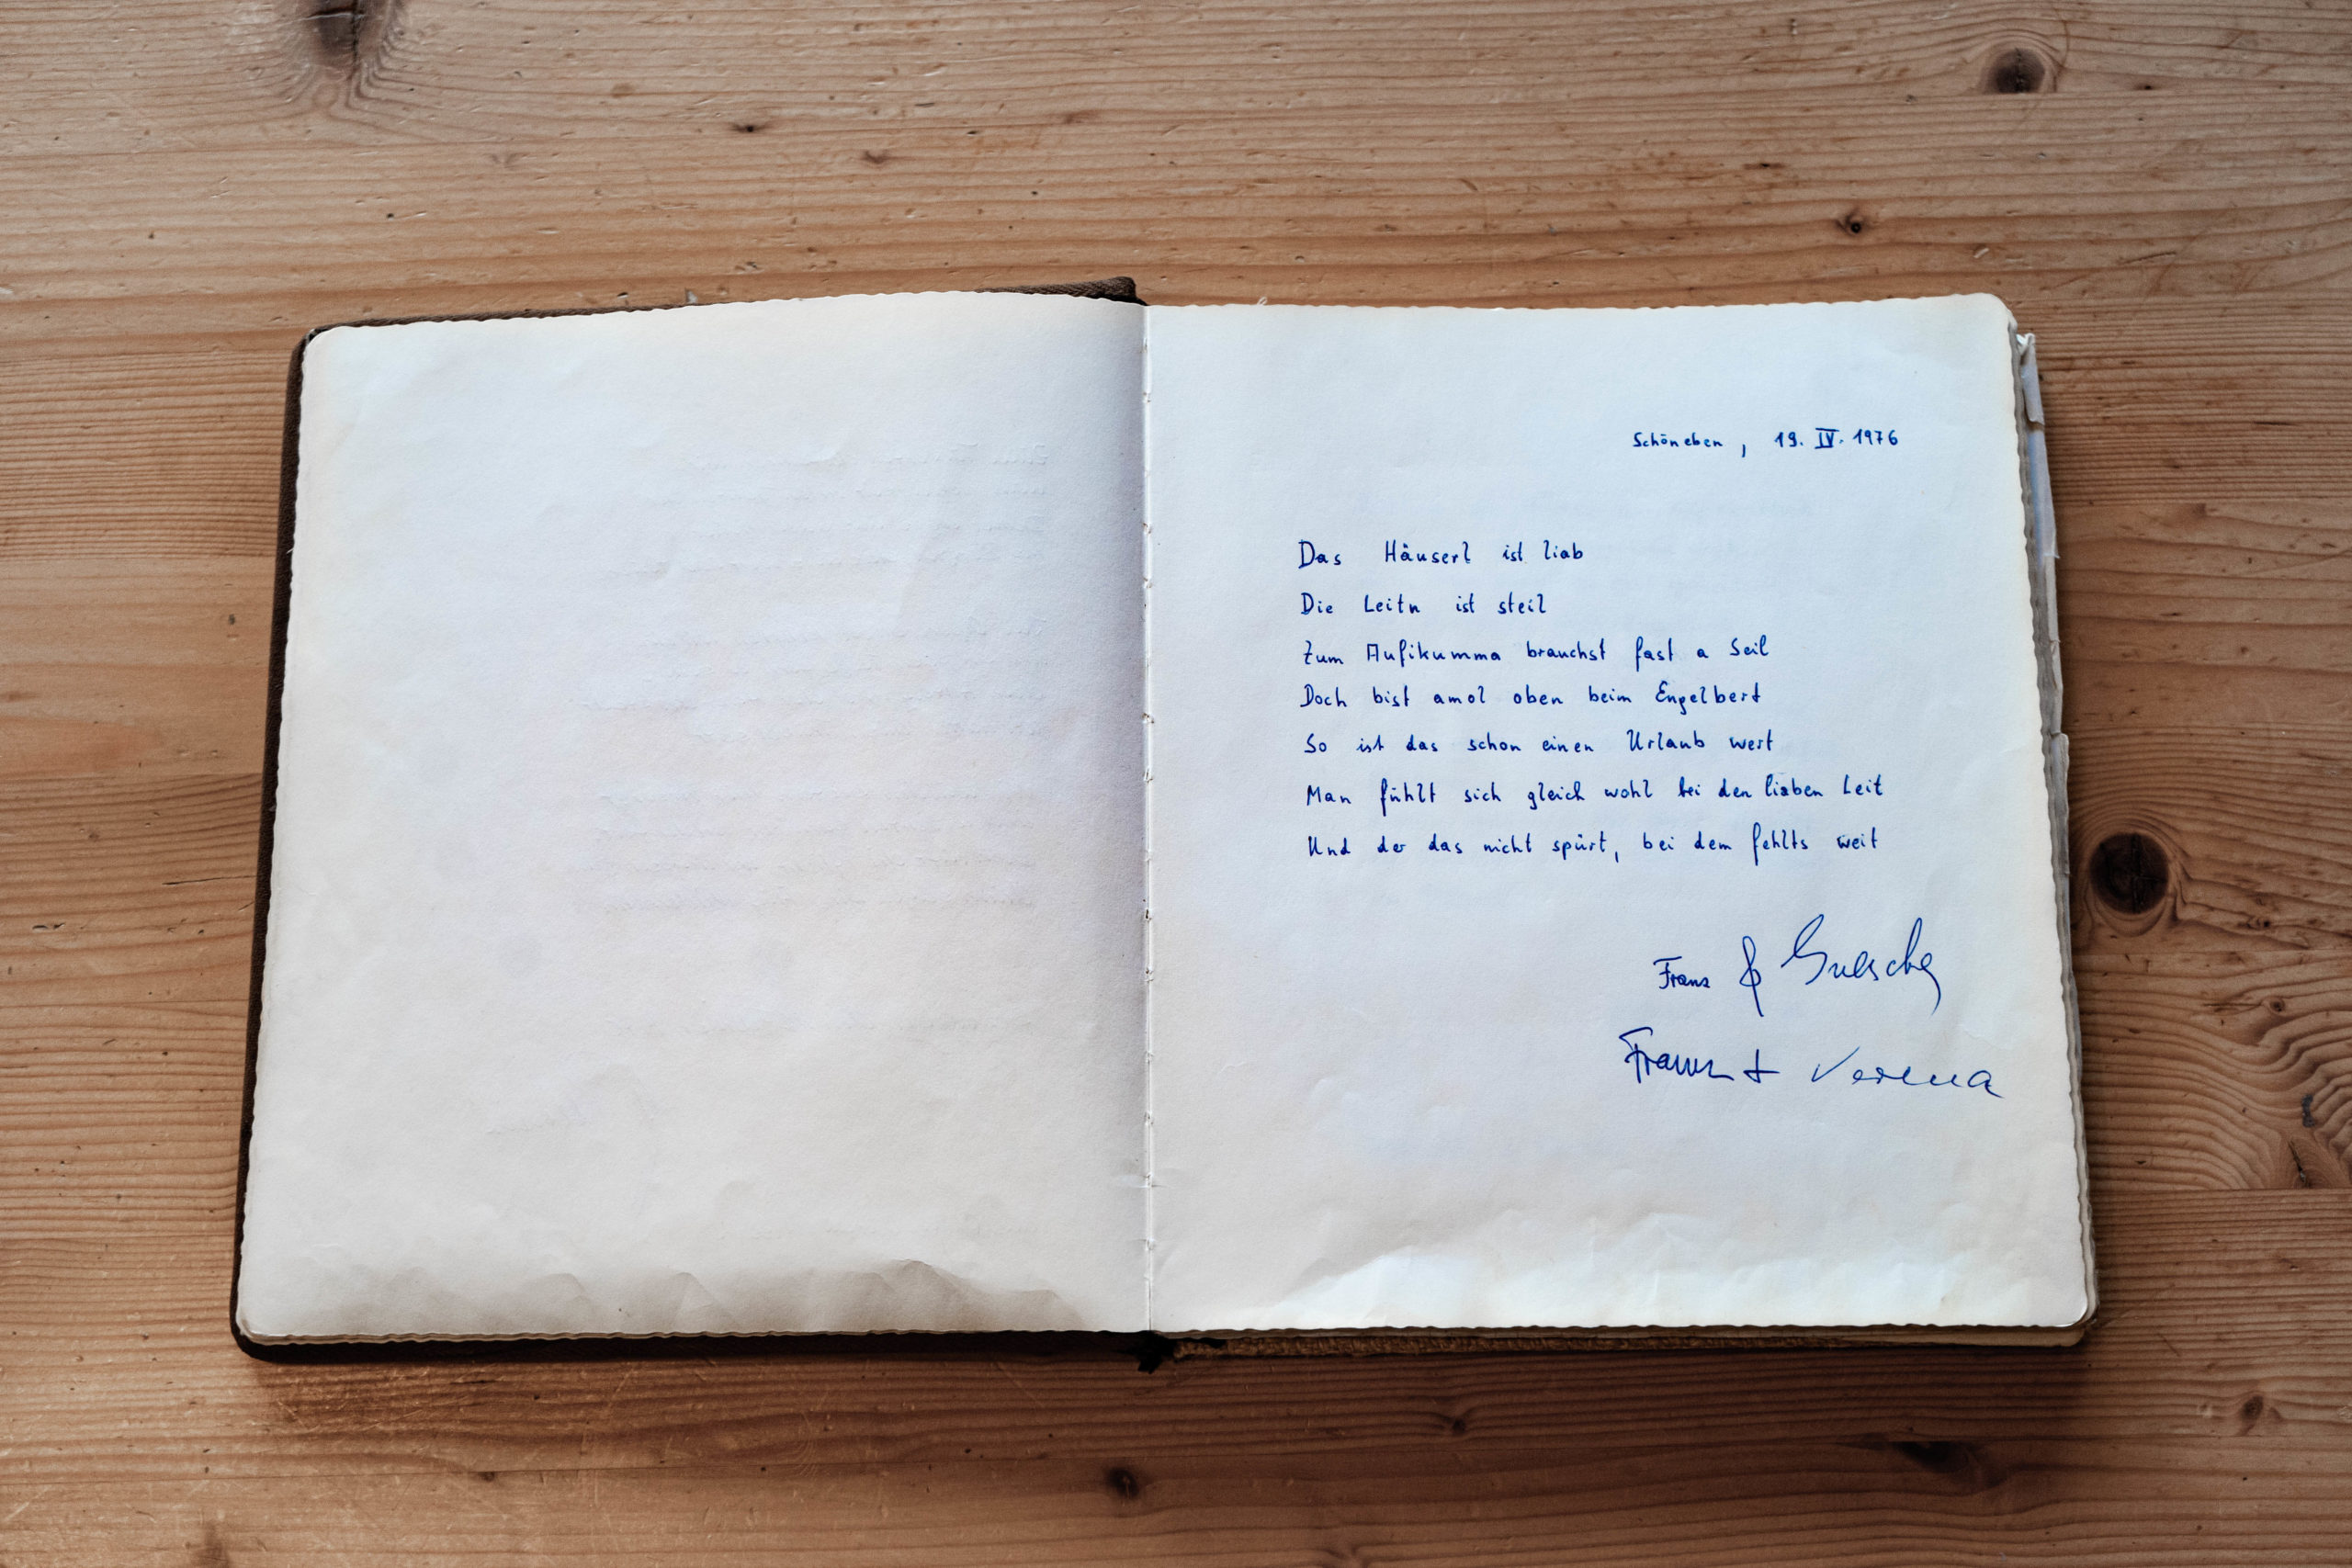 Schöneben, 19. IV. 1976
Das Häuserl ist liab
Die Leitn ist steil
Zum Aufikumma brauchst fast a Seil
Doch bist amol oben beim Engelbert
So ist das schon einen Urlaub wert
Man fühlt sich gleich wohl bei den lieben Leit
Und der das nicht spürt, bei dem fehlts weit
Franz &
Franz + Verena